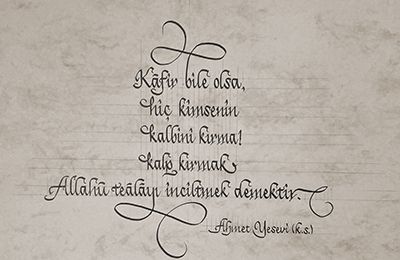 Kâfir bile olsa,
hiç kimsenin
kalbini kırma!
kalp kırmak
Allâhü teâlâyı inciltmek demektir.
Ahmet Yesevî (k.s.)